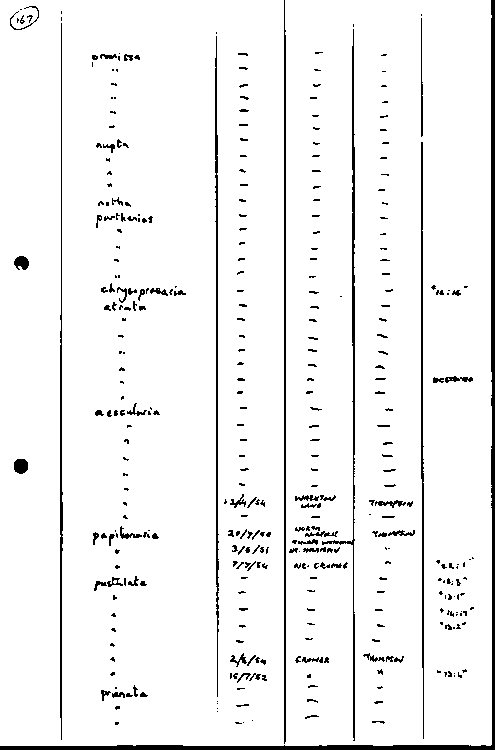 167
promissa — — —
" — — —
" — — —
" — — —
" — — —
" — — —
nupta — — —
" — — —
" — — —
" — — —
notha — — —
parthenias — — —
" — — —
" — — —
" — — —
" — — —
chrysoprasaria — — — "12:16"
atrata — — —
" — — —
" — — —
" — — —
" — — —
" — — —
" — — —
aescularia — — —
" — — —
" — — —
" — — —
" — — —
" — — —
" /4/54 WARKTON LANE THOMPSON
" — — —
papilionaria 20/7/50 NORTH THOMPSON
" 3/6/51 "
" 7/7/54 NR. CROMER "
pustulata — — —
" — — —
" — — — "13:1"
" — — — "14:17"
" — — — "13:2"
" — — —
" 2/6/54 CROMER THOMPSON
" 15/7/52 " " "13:4"
pruinata — — —
" — — —
" — — —